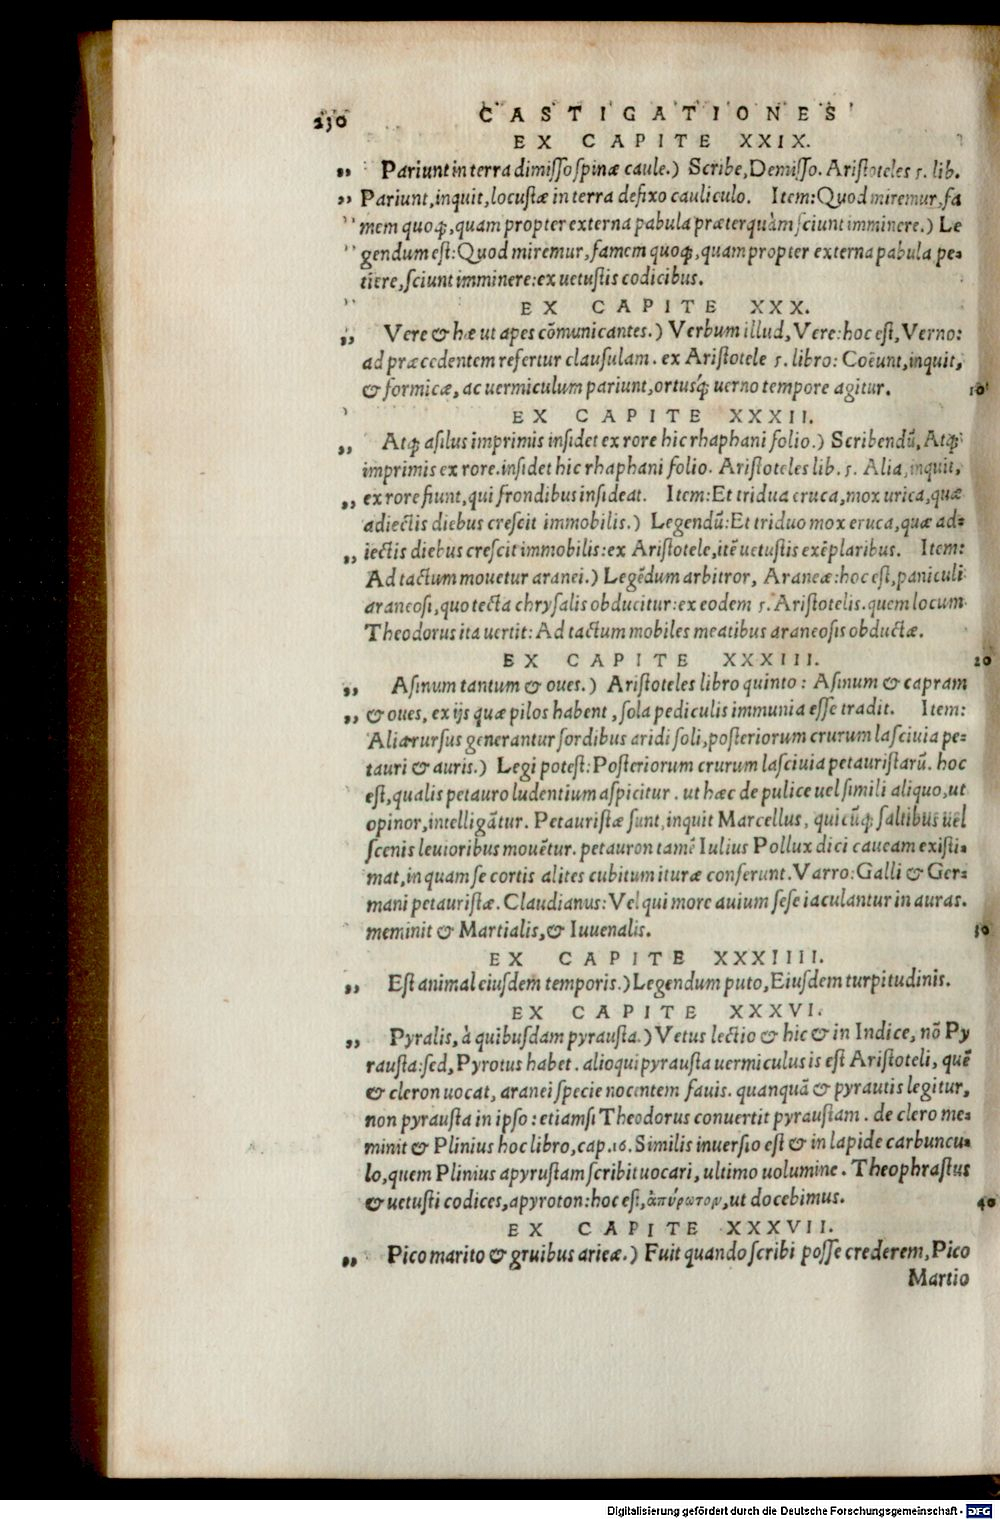 230 CASTIGATIONES
EX CAPITE XXIX.
„ Pariunt in terra dimisso spinæ caule.) Scribe, Demisso. Aristoteles 5. lib.
„ Pariunt, inquit, locustæ in terra defixo cauliculo. Item: Quod miremur, fa
„ mem quoq;, quam propter externa pabula præterquàm sciunt imminere.) Le
„ gendum est: Quod miremur, famem quoq;, quam propter externa pabula pe=
tiere, sciunt imminere: ex uetustis codicibus.
EX CAPITE XXX.
„ Vere & hæ ut apes cõmunicantes.) Verbum illud, Vere: hoc est, Verno:
ad præcedentem refertur clausulam. ex Aristotele 5. libro: Coëunt, inquit,
& formicæ, ac uermiculum pariunt, ortusq́; uerno tempore agitur. 10
EX CAPITE XXXII.
„ Atq; asilus imprimis insidet ex rore hic rhaphani folio.) Scribendũ, Atq;
imprimis ex rore. insidet hic rhaphani folio. Aristoteles lib. 5. Alia, inquit,
„ ex rore fiunt, qui frondibus insideat. Item: Et tridua eruca, mox urica, quæ
adiectis diebus crescit immobilis.) Legendũ: Et triduo mox eruca, quæ ad=
„ iectis diebus crescit immobilis: ex Aristotele, itẽ uetustis exẽplaribus. Item:
Ad tactum mouetur aranei.) Legẽdum arbitror, Araneæ: hoc est, paniculi
araneosi, quo tecta chrysalis obducitur: ex eodem 5. Aristotelis. quem locum
Theodorus ita uertit: Ad tactum mobiles meatibus araneosis obductæ.
EX CAPITE XXXIII. 20
„ Asinum tantum & oues.) Aristoteles libro quinto: Asinum & capram
„ & oues, ex ijs quæ pilos habent, sola pediculis immunia esse tradit. Item:
Alia rursus generantur sordibus aridi soli, posteriorum crurum lasciuia pe=
tauri & auris.) Legi potest: Posteriorum crurum lasciuia petauristarũ. hoc
est, qualis petauro ludentium aspicitur. ut hæc de pulice uel simili aliquo, ut
opinor, intelligãtur. Petauristæ sunt, inquit Marcellus, quicũq; saltibus uel
scenis leuioribus mouẽtur. petauron tamẽ Iulius Pollux dici caueam existi=
mat, in quam se cortis alites cubitum ituræ conferunt. Varro: Galli & Ger=
mani petauristæ. Claudianus: Vel qui more auium sese iaculantur in auras.
meminit & Martialis, & Iuuenalis. 30
EX CAPITE XXXIIII.
„ Est animal eiusdem temporis.) Legendum puto, Eiusdem turpitudinis.
EX CAPITE XXXVI.
„ Pyralis, à quibusdam pyrausta.) Vetus lectio & hic & in Indice, nõ Py
rausta: sed, Pyrotus habet. alioqui pyrausta uermiculus is est Aristoteli, quẽ
& cleron uocat, aranei specie nocentem fauis. quanquã & pyrautis legitur,
non pyrausta in ipso: etiamsi Theodorus conuertit pyraustam. de clero me=
minit & Plinius hoc libro, cap. 16. Similis inuersio est & in lapide carbuncu=
lo, quem Plinius apyrustam scribit uocari, ultimo uolumine. Theophrastus
& uetusti codices, apyroton: hoc est, ἀπύρωτον, ut docebimus. 40
EX CAPITE XXXVII.
„ Pico marito & gruibus arieæ.) Fuit quando scribi posse crederem, Pico
Martio
Digitalisierung gefördert durch die Deutsche Forschungsgemeinschaft - DFG